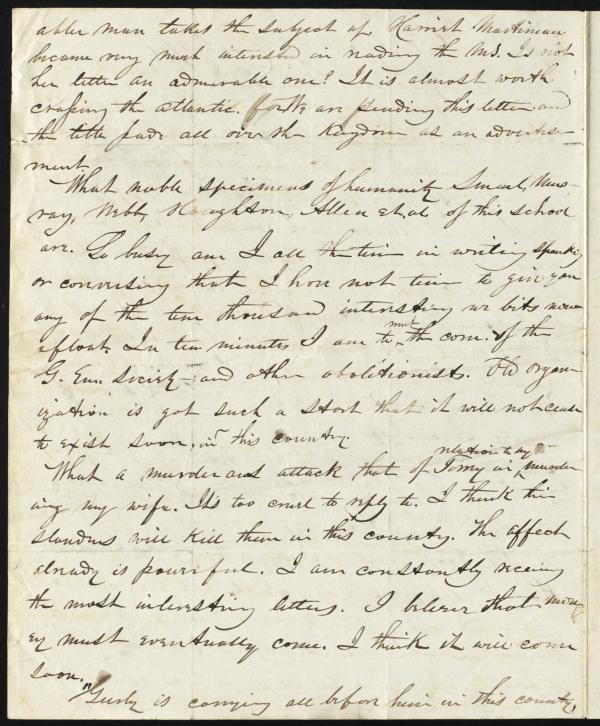 abler man takes the subject up. Harriet Martineau
became very much interested in reading the Ms. Is not
her letter an admirable one? It is almost worth
crossing the atlantic for. We are sending this letter and
the title page all over the Kingdom as an advertise-
ment.
What noble specimens of humanity Smeal, Mur-
ray, Webb, Haughton, Allen et al of this school
are. So busy am I all the time in writing speaking
or conversing that I have not time to give you
any of the ten thousand interesting bits now
afloat. In ten minutes I am to meet the com. of the
G. Em Society and other abolitionists. Old organ-
ization is got such a start that it will not cease
to exist soon, in this country.
What a murderous attack that of Torrey in relation to my murder
ing my wife. It's too cruel to reply to. I think their
slanders will kill them in this country. The effect
already is powerful. I am constantly receiving
the most interesting letters. I believe that mon
ey must eventually come. I think it will come
soon.
"Gurly is carrying all before him in this country,